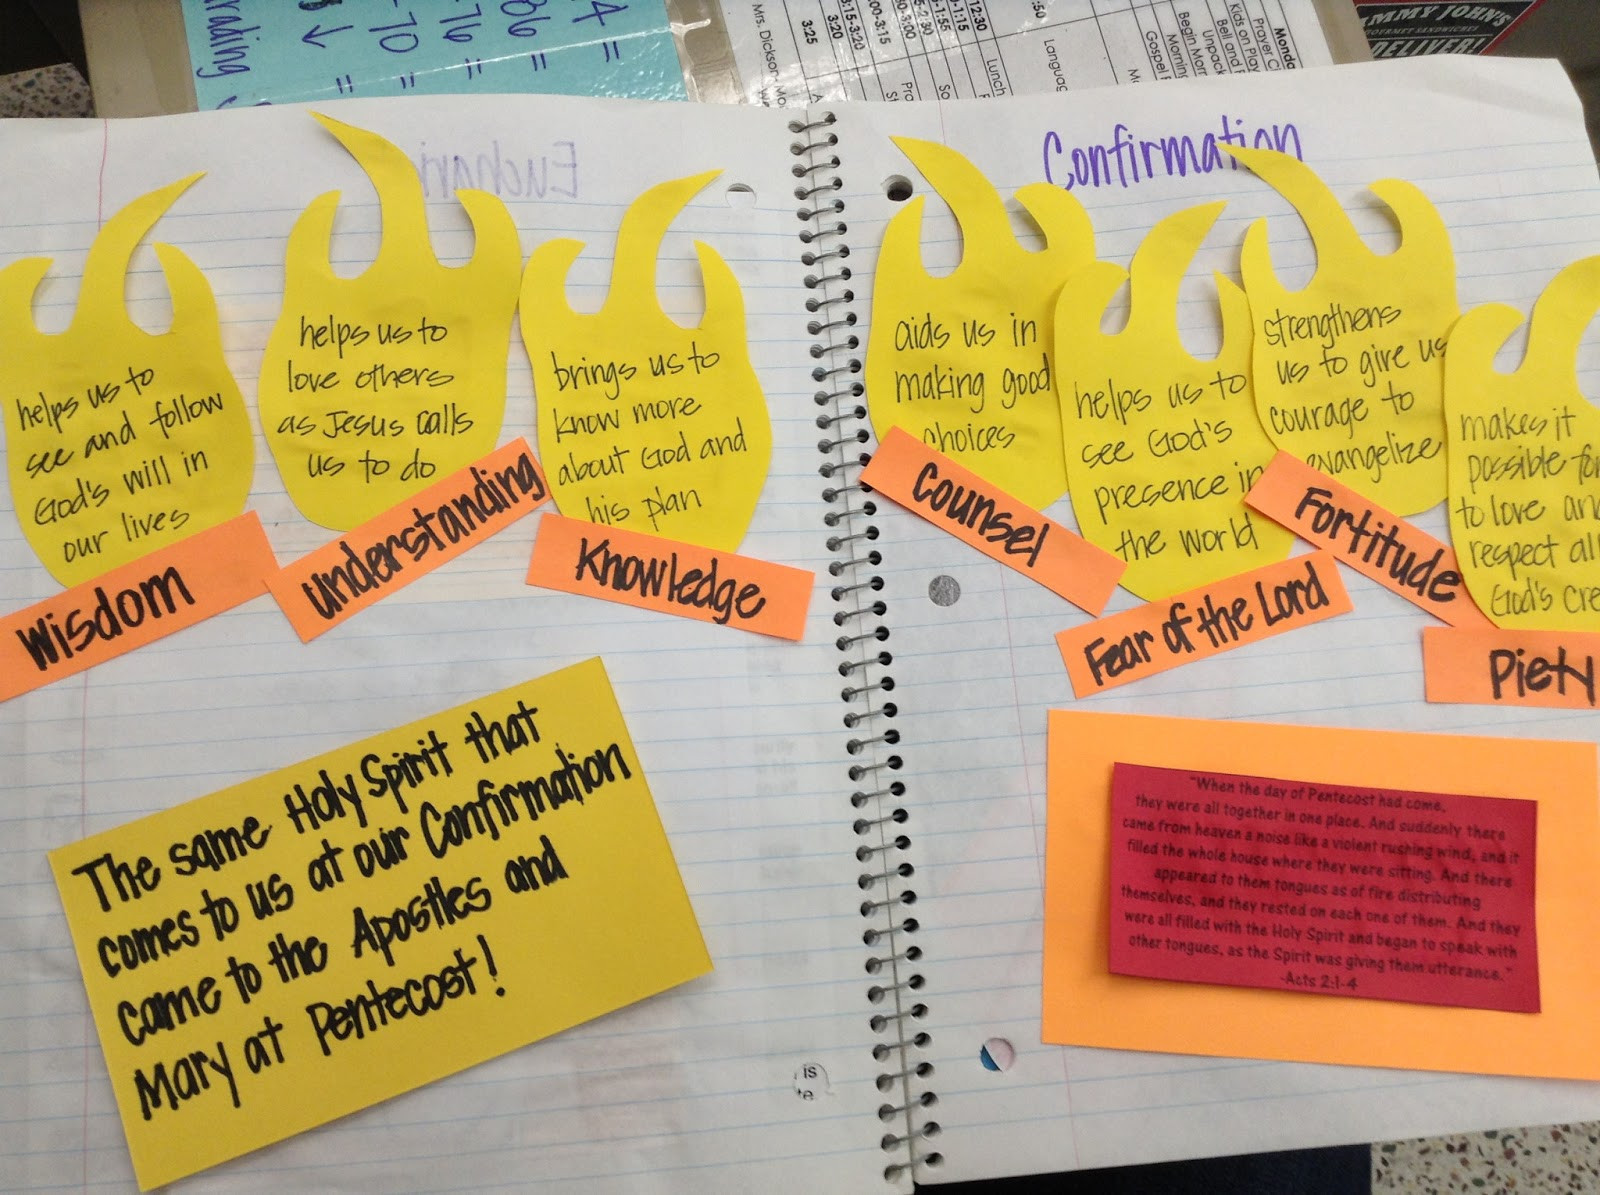 rading
4 =
86 =
-76 =
-70 =
↓ =
Mrs. Dickson
3:25
3:20
3:15-3:20
Lunch
Languag
12:30
:50
Monda
Prayer C
Kids on Play
Bell and
Unpack
Begin Mor
Morning
Gospel
MMY JOHN'S
GOURMET SANDWICHES
DELIVER!
Euchari
Confirmation
helps us to
see and follow
God's will in
our lives
Wisdom
helps us to
love others
as Jesus calls
us to do
understanding
brings us to
know more
about God and
his plan
Knowledge
aids us in
making good
choices
Counsel
helps us to
see God's
presence in
the world
Fear of the Lord
strengthens
us to give us
courage to
evangelize
Fortitude
makes it
possible for
to love and
respect all
God's cre
Piety
The same Holy Spirit that
comes to us at our Confirmation
came to the Apostles and
Mary at Pentecost!
"When the day of Pentecost had come,
they were all together in one place. And suddenly there
came from heaven a noise like a violent rushing wind, and it
filled the whole house where they were sitting. And there
appeared to them tongues as of fire distributing
themselves, and they rested on each one of them. And they
were all filled with the Holy Spirit and began to speak with
other tongues, as the Spirit was giving them utterance."
-Acts 2:1-4
is
te